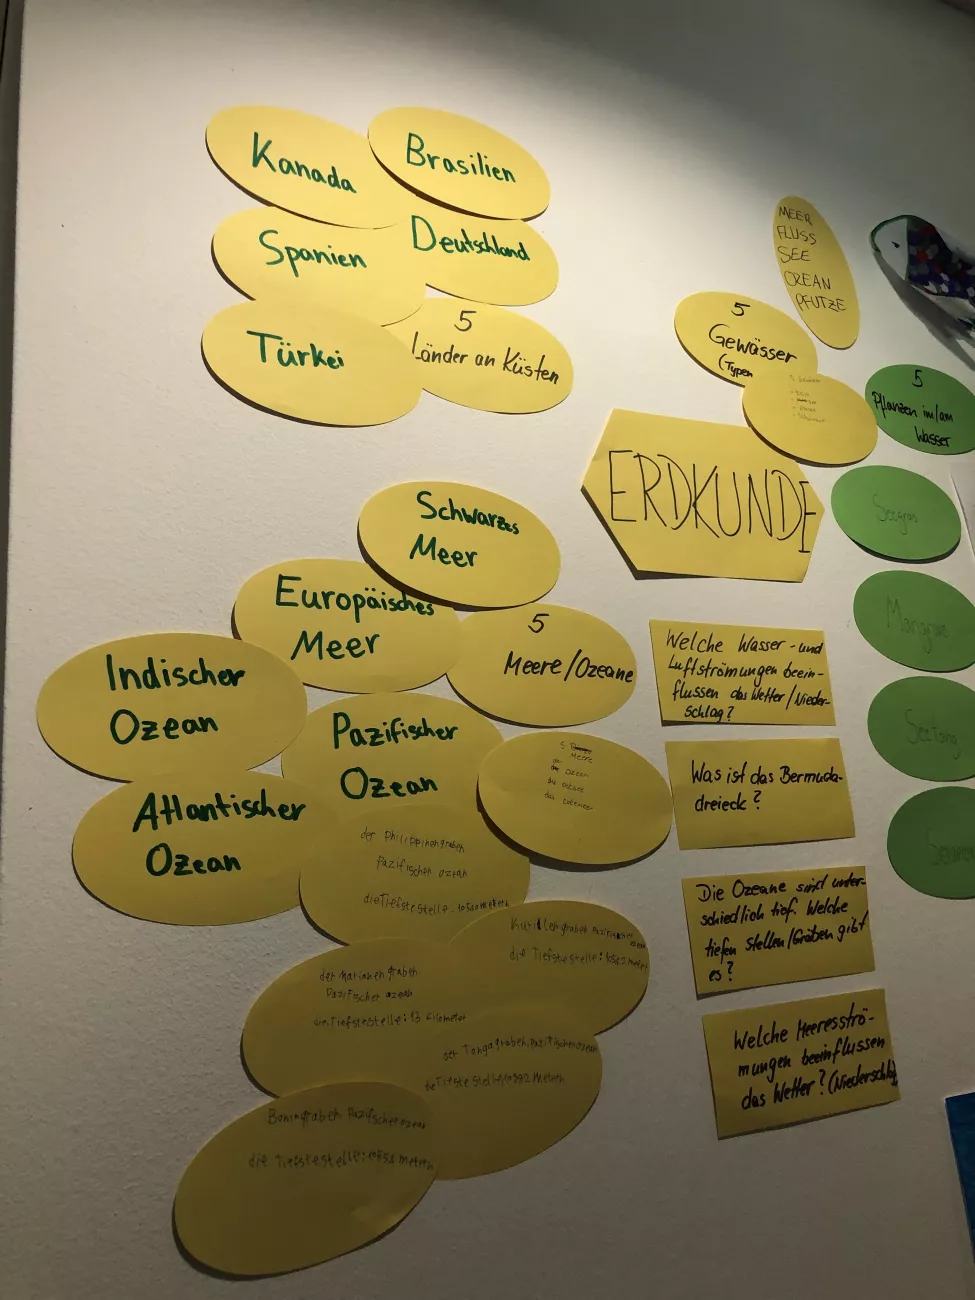 Kanada
Brasilien
Spanien
Deutschland
Türkei
5
Länder an Küsten
MEER
FLUSS
SEE
OZEAN
PFÜTZE
5
Gewässer
(Typen
5
Pflanzen im/am
Wasser
ERDKUNDE
Seegras
Mangrove
Seetang
Schwarzes
Meer
Europäisches
Meer
5
Meere/Ozeane
Indischer
Ozean
Pazifischer
Ozean
Atlantischer
Ozean
5
Meere
Ozean
der Philippinengraben
Pazifischen ozean
die Tiefstestelle
Kurillengraben Pazifischer
ozean
die Tiefstestelle:
der Marianengraben
Pazifischer ozean
die Tiefstestelle: 13 Kilometer
der Tongagraben, Pazifischen ozean
Boningraben Pazifischer ozean
die Tiefstestelle:
Welche Wasser- und
Luftströmungen beein-
flussen das Wetter/Nieder-
schlag?
Was ist das Bermuda-
dreieck?
Die Ozeane sind unter-
schiedlich tief. Welche
tiefen Stellen/Gräben gibt
es?
Welche Meeresströ-
mungen beeinflussen
das Wetter? (Niederschlag